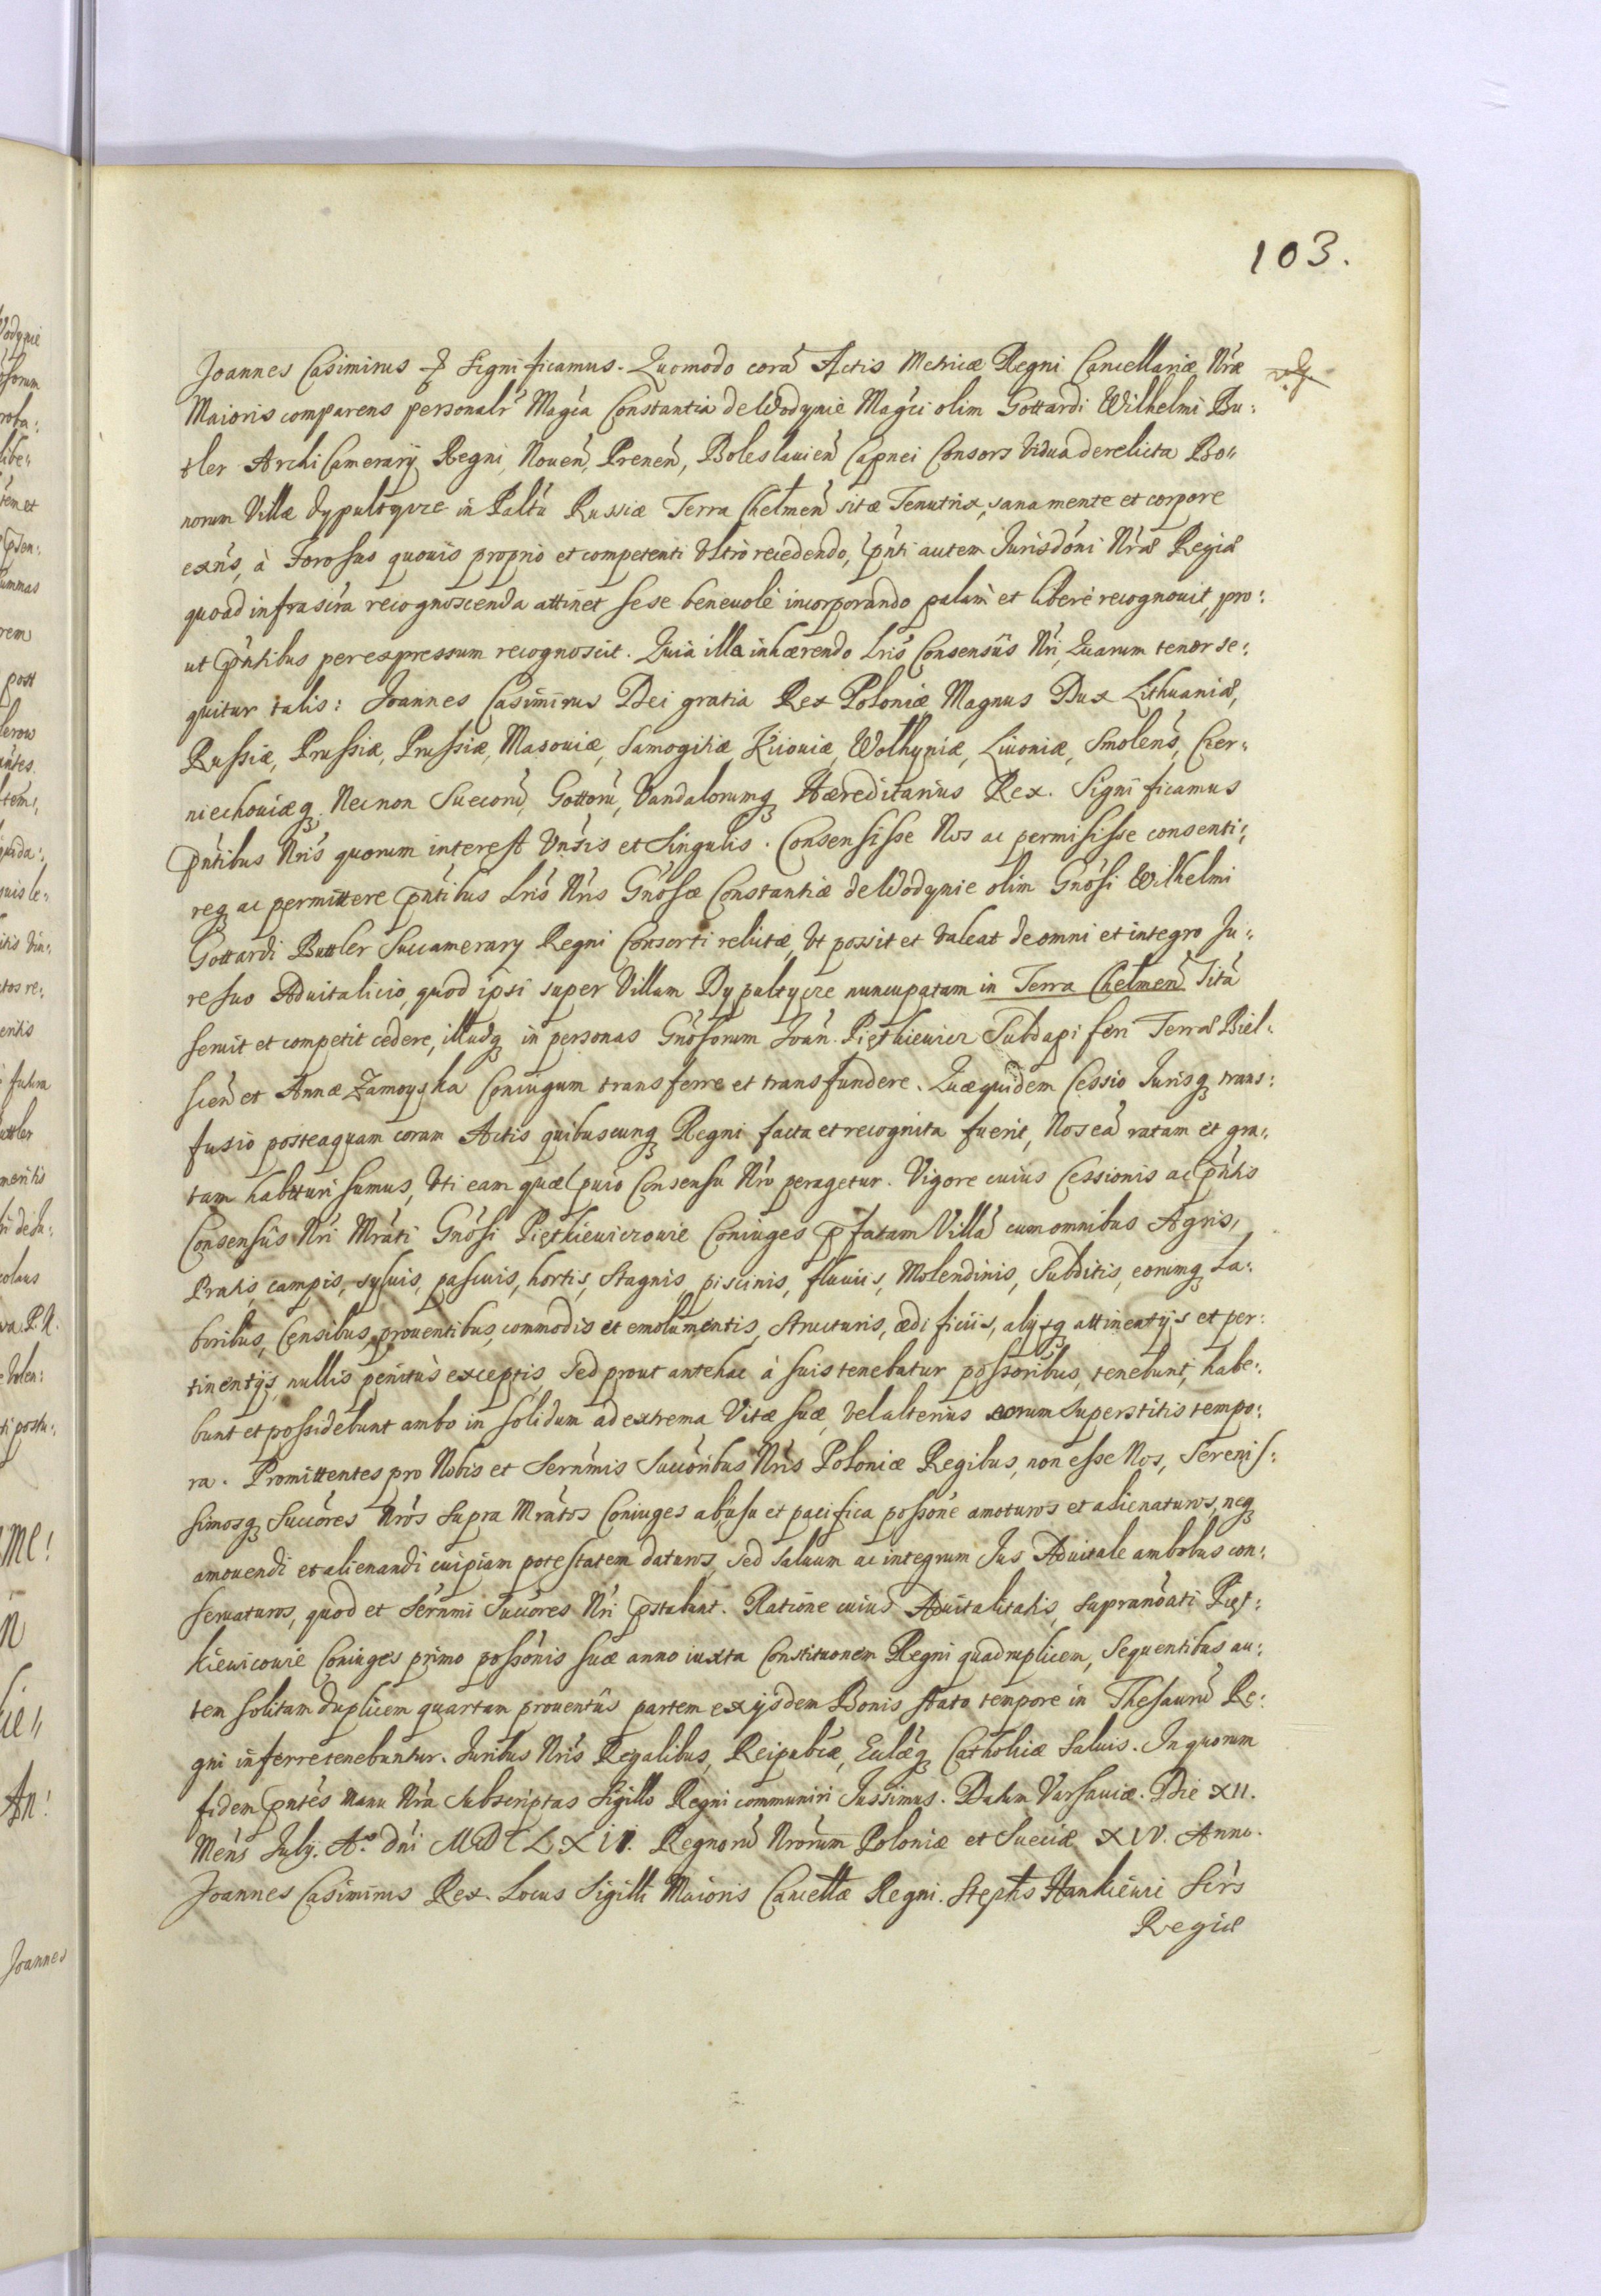 103.
Joannes Casimirus Significamus. Quomodo corã Actis Metricæ Regni Cancellariæ Nr̃æ
Maioris comparens personalr̃ Magc̃a Constantia de Wodynie Magc̃i olim Gottardi Wilhelmi Bu:
tler Archi Camerarÿ Regni, Noueñ, Preneñ, Boleslauieñ Capnei Consors Vidua derelicta Bo:
norum Villæ Dypultycze in Paltũ Russiæ Terra Chelmeñ sitæ Tenutrix, sana mente et corpore
exñs, à Foro suo quouis proprio et competenti Vltrò recedendo, pñti autem Jurisdõni Nr̃æ Regiæ
quoad infrascr̃a recognoscenda attinet sese beneuolè incorporando palàm et liberè recognouit, pro:
ut pñtibus per expressum recognoscit. Quia illa inhærendo Lris̃ Consensûs Nr̃i, Quarum tenor se:
quitur talis: Joannes Casimirus Dei gratia Rex Poloniæ, Magnus Dux Lithuaniæ,
Russiæ, Prussiæ, Prussiæ, Masouiæ, Samogitiæ, Kiiouiæ, Wolhyniæ, Liuoniæ, Smoleñs, Czer:
niechouiæq, Necnon Suecorũ, Gottorũ, Vandalorumq Hæreditarius Rex. Significamus
pñtibus Nr̃is quorum interest Vñsis et Singulis. Consensisse Nos ac permisisse consenti:
req ac permittere pñtibus Lris̃ Nr̃is Gñosæ Constantiæ de Wodynie olim Gñosi Wilhelmi
Gottardi Buttler Succamerarÿ Regni Consorti relictæ, Vt possit et Valeat de omni et integro Ju:
re suo Aduitalicio, quod ipsi super Villam Dypultycze nuncupatam in Terra Chelmeñ Sitã
seruit et competit cedere, illudq in personas Gñosorum Joañ Piętkiewicz Subdapiferi Terræ Biel:
scieñ et Annæ Zamoyska Coniugum transferre et transfundere. Quæquidem Cessio Jurisq trans:
fusio posteaquam coram Actis quibuscunq Regni facta et recognita fuerit, Nos eã ratam et gra:
tam habituri sumus, Vti eam quæ puio Consensu Nr̃o peragetur. Vigore cuius Cessionis ac pñtis
Consensûs Nr̃i Mr̃ati Gñosi Piętkiewiczowie Coniuges pfatam Villã cum omnibus Agris,
Pratis, campis, syluis, pascuis, hortis, Stagnis, piscinis, fluuiis, Molendinis, Subditis, eorumq La:
boribus, Censibus, prouentibus, commodis et emolumentis, Structuris, ædificiis, alÿsq attinentÿs et per:
tinentÿs, nullis penitùs exceptis, Sed prout antehac à suis tenebatur possoribus, tenebunt, habe:
bunt et possidebunt ambo in solidum ad extrema Vitæ suæ, vel alterius eorum Superstitis tempo:
ra. Promittentes pro Nobis et Serñmis Succõribus Nr̃is Poloniæ Regibus, non esse Nos, Serenis:
simosq Succõres Nr̃os supra Mr̃atos Coniuges ab usu et pacifica possõne amoturos et alienaturos, neq
amouendi et alienandi cuipiam potestatem daturos, Sed saluum ac integrum Jus Aduitale ambobus con:
seruaturos, quod et Serñmi Succõres Nr̃i pstabunt. Ratione cuius Aduitalitatis, supranõati Pięt:
kiewicowie Coniuges primo possõnis suæ anno iuxta Constituonem Regni quadruplicem, sequentibus au:
tem solitam duplicem quartam prouentûs partem ex ÿsdem Bonis stato tempore in Thesaurũ Re:
gni inferre tenebuntur. Juribus Nr̃is Regalibus, Reipubcæ, Ecclæq Catholicæ Saluis. In quorum
fidem pñtes manu Nr̃a Subscriptas Sigillo Regni communiri Jussimus. Datum Varsauiæ. Die XII.
Meñs July. Aº. Dñi MDCLXII. Regnorũ Nr̃orum Poloniæ et Sueciæ XIV. Anno.
Joannes Casimirus Rex. Locus Sigilli Maioris Cancellæ Regni. Stephs Hankiewi Scr̃s
Regiæ